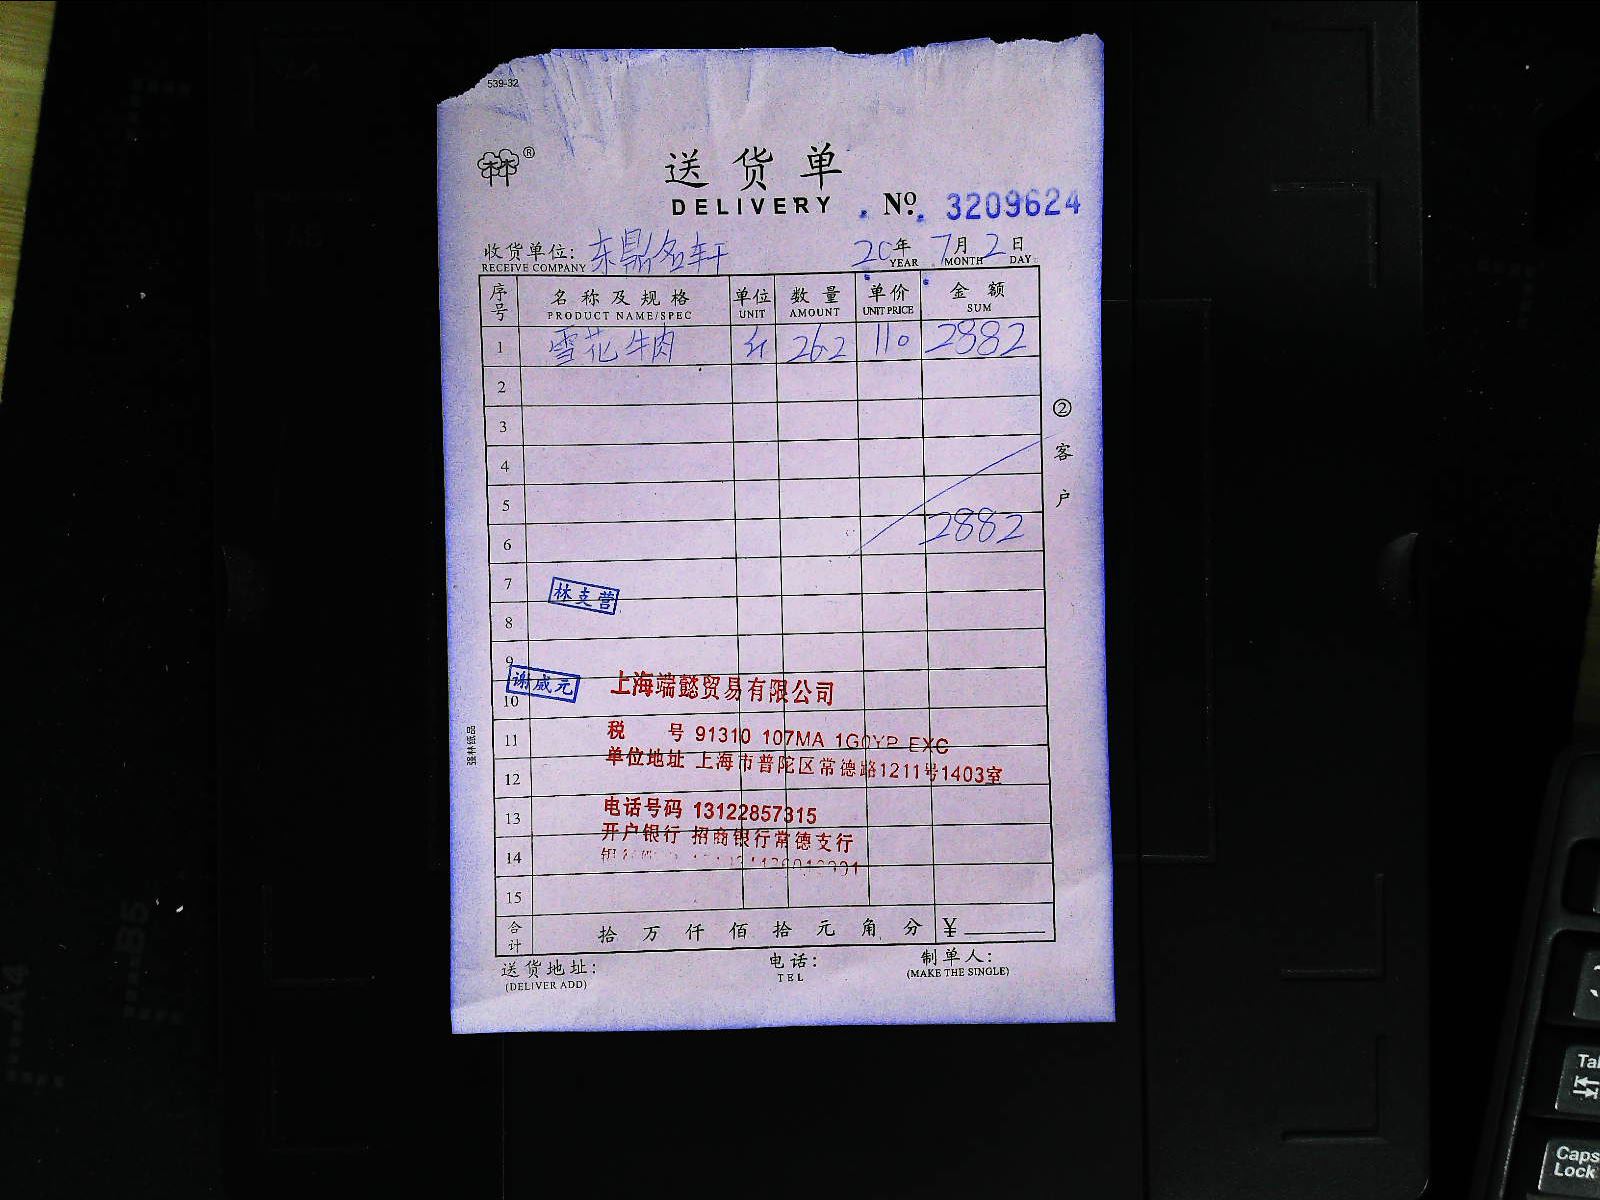 539-32
林林®
送货单
DELIVERY
No. 3209624
收货单位: 东鼎名轩 20年 7月 2日
RECEIVE COMPANY YEAR MONTH DAY
序号 名称及规格 单位 数量 单价 金额
PRODUCT NAME/SPEC UNIT AMOUNT UNIT PRICE SUM
1 雪花牛肉 斤 26.2 110 2882
2
3
4
5
6 2882
7
林克营
8
9
谢威元
10
上海端懿贸易有限公司
11 税 号 91310 107MA 1G0YP EXC
单位地址 上海市普陀区常德路1211号1403室
12
13 电话号码 13122857315
开户银行 招商银行常德支行
14
15
合计 拾 万 仟 佰 拾 元 角 分 ¥
送货地址: 电话: 制单人:
(DELIVER ADD) TEL (MAKE THE SINGLE)
②客户
强林纸品
A4
B5
Tab
Caps Lock